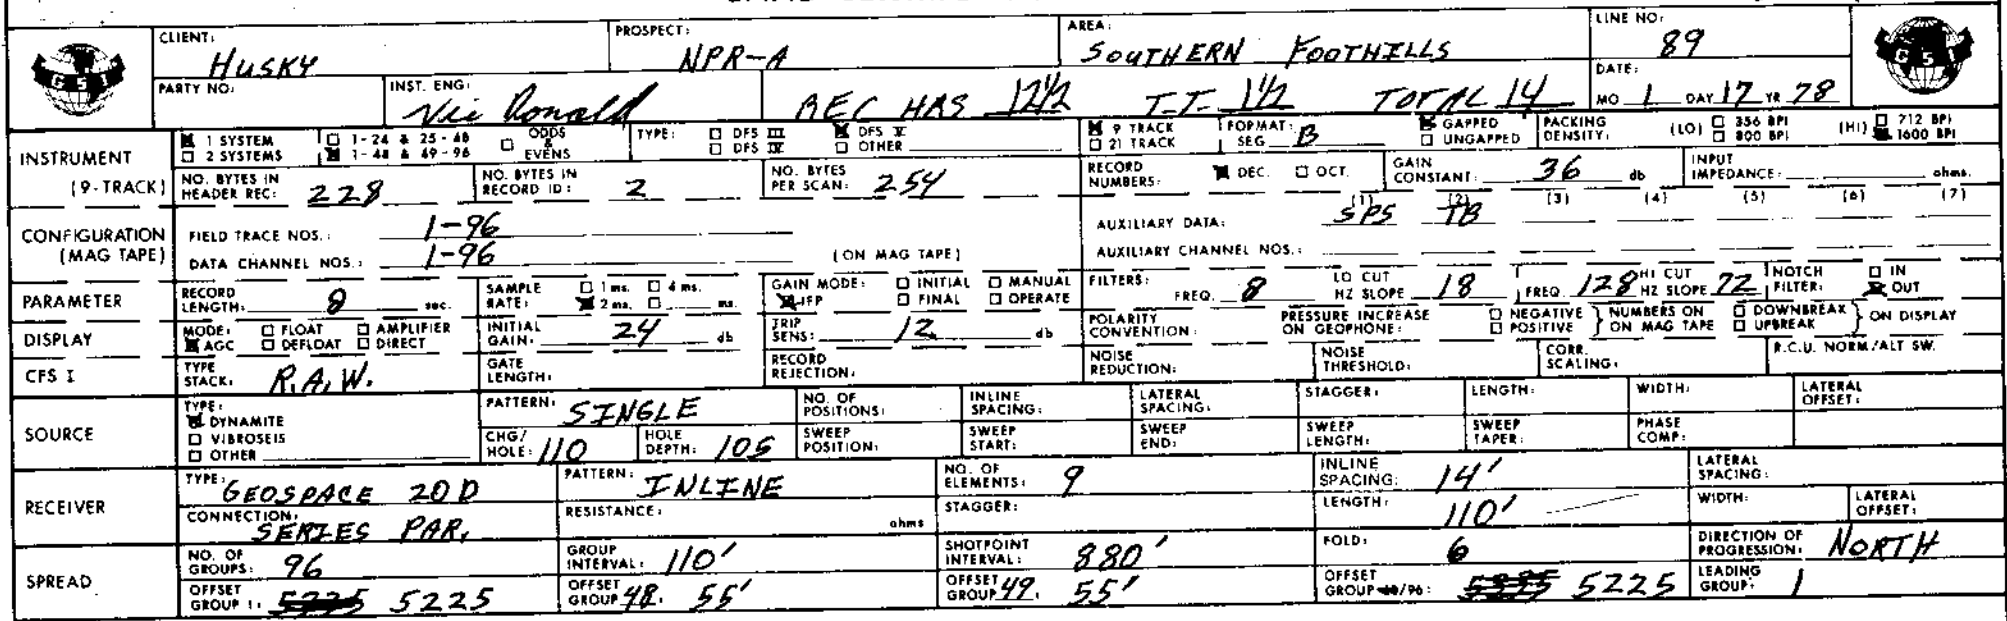 CLIENT: HUSKY PROSPECT: NPR-A AREA: SOUTHERN FOOTHILLS LINE NO: 89
GSI GSI
PARTY NO: INST. ENG: Vic Ronald REC HRS 12 1/2 T.T. 1 1/2 TOTAL 14 DATE: MO 1 DAY 17 YR 78
INSTRUMENT (9-TRACK)
1 SYSTEM 1-24 & 25-48 ODDS & EVENS TYPE: DFS III DFS V 9 TRACK FORMAT: SEG B GAPPED PACKING DENSITY: (LO) 356 BPI (HI) 712 BPI
2 SYSTEMS 1-48 & 49-96 DFS IV OTHER 21 TRACK UNGAPPED 800 BPI 1600 BPI
NO. BYTES IN HEADER REC: 228 NO. BYTES IN RECORD ID: 2 NO. BYTES PER SCAN: 254 RECORD NUMBERS: DEC. OCT. GAIN CONSTANT: 36 db INPUT IMPEDANCE: ohms.
CONFIGURATION (MAG TAPE)
(1) (2) (3) (4) (5) (6) (7)
FIELD TRACE NOS.: 1-96 AUXILIARY DATA: SPS TB
DATA CHANNEL NOS.: 1-96 (ON MAG TAPE) AUXILIARY CHANNEL NOS.:
PARAMETER RECORD LENGTH: 8 sec. SAMPLE RATE: 1 ms. 4 ms. 2 ms. ms. GAIN MODE: INITIAL MANUAL IFP FINAL OPERATE FILTERS: FREQ. 8 LO CUT HZ SLOPE 18 FREQ. 128 HI CUT HZ SLOPE 72 NOTCH FILTER: IN OUT
DISPLAY MODE: FLOAT AMPLIFIER AGC DEFLOAT DIRECT INITIAL GAIN: 24 db TRIP SENS: 12 db POLARITY CONVENTION: PRESSURE INCREASE ON GEOPHONE: NEGATIVE POSITIVE NUMBERS ON MAG TAPE DOWNBREAK UPBREAK ON DISPLAY
CFS I TYPE STACK: R.A.W. GATE LENGTH: RECORD REJECTION: NOISE REDUCTION: NOISE THRESHOLD: CORR. SCALING: R.C.U. NORM/ALT SW.
SOURCE TYPE: DYNAMITE VIBROSEIS OTHER
PATTERN: SINGLE NO. OF POSITIONS: INLINE SPACING: LATERAL SPACING: STAGGER: LENGTH: WIDTH: LATERAL OFFSET:
CHG/HOLE: 110 HOLE DEPTH: 105 SWEEP POSITION: SWEEP START: SWEEP END: SWEEP LENGTH: SWEEP TAPER: PHASE COMP:
RECEIVER TYPE: GEOSPACE 20D PATTERN: INLINE NO. OF ELEMENTS: 9 INLINE SPACING: 14' LATERAL SPACING:
CONNECTION: SERIES PAR. RESISTANCE: ohms STAGGER: LENGTH: 110' WIDTH: LATERAL OFFSET:
SPREAD NO. OF GROUPS: 96 GROUP INTERVAL: 110' SHOTPOINT INTERVAL: 880' FOLD: 6 DIRECTION OF PROGRESSION: NORTH
OFFSET GROUP 1: 5225 OFFSET GROUP 48: 55' OFFSET GROUP 49: 55' OFFSET GROUP /96: 5225 LEADING GROUP: 1